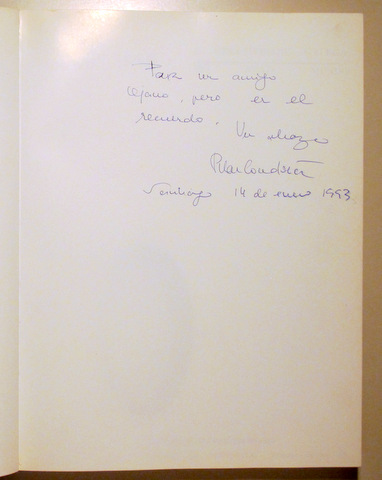 Para un amigo
lejano, pero en el
recuerdo. Un abrazo
Pilar
Santiago 14 de enero 1993